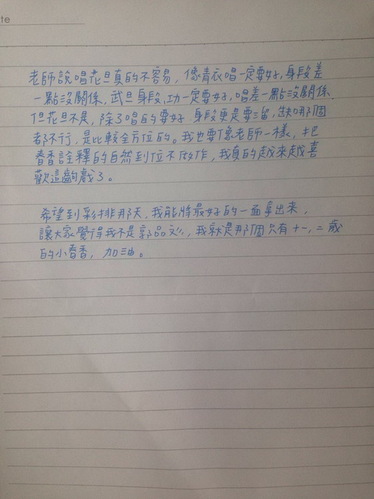 te
老師說唱花旦真的不容易，像青衣唱一定要好，身段差
一點沒關係，武旦身段，功一定要好，唱差一點沒關係，
但花旦不是，除了唱的要好 身段更是要留，缺哪個
都不行，是比較全方位的。我也要像老師一樣，把
香香詮釋的自然到位不做作，我真的越來越喜
歡這齣戲了。
希望到彩排那天，我能將最好的一面拿出來，
讓大家覺得我不是郭品彣，我就是那個只有十一、二歲
的小香香，加油。